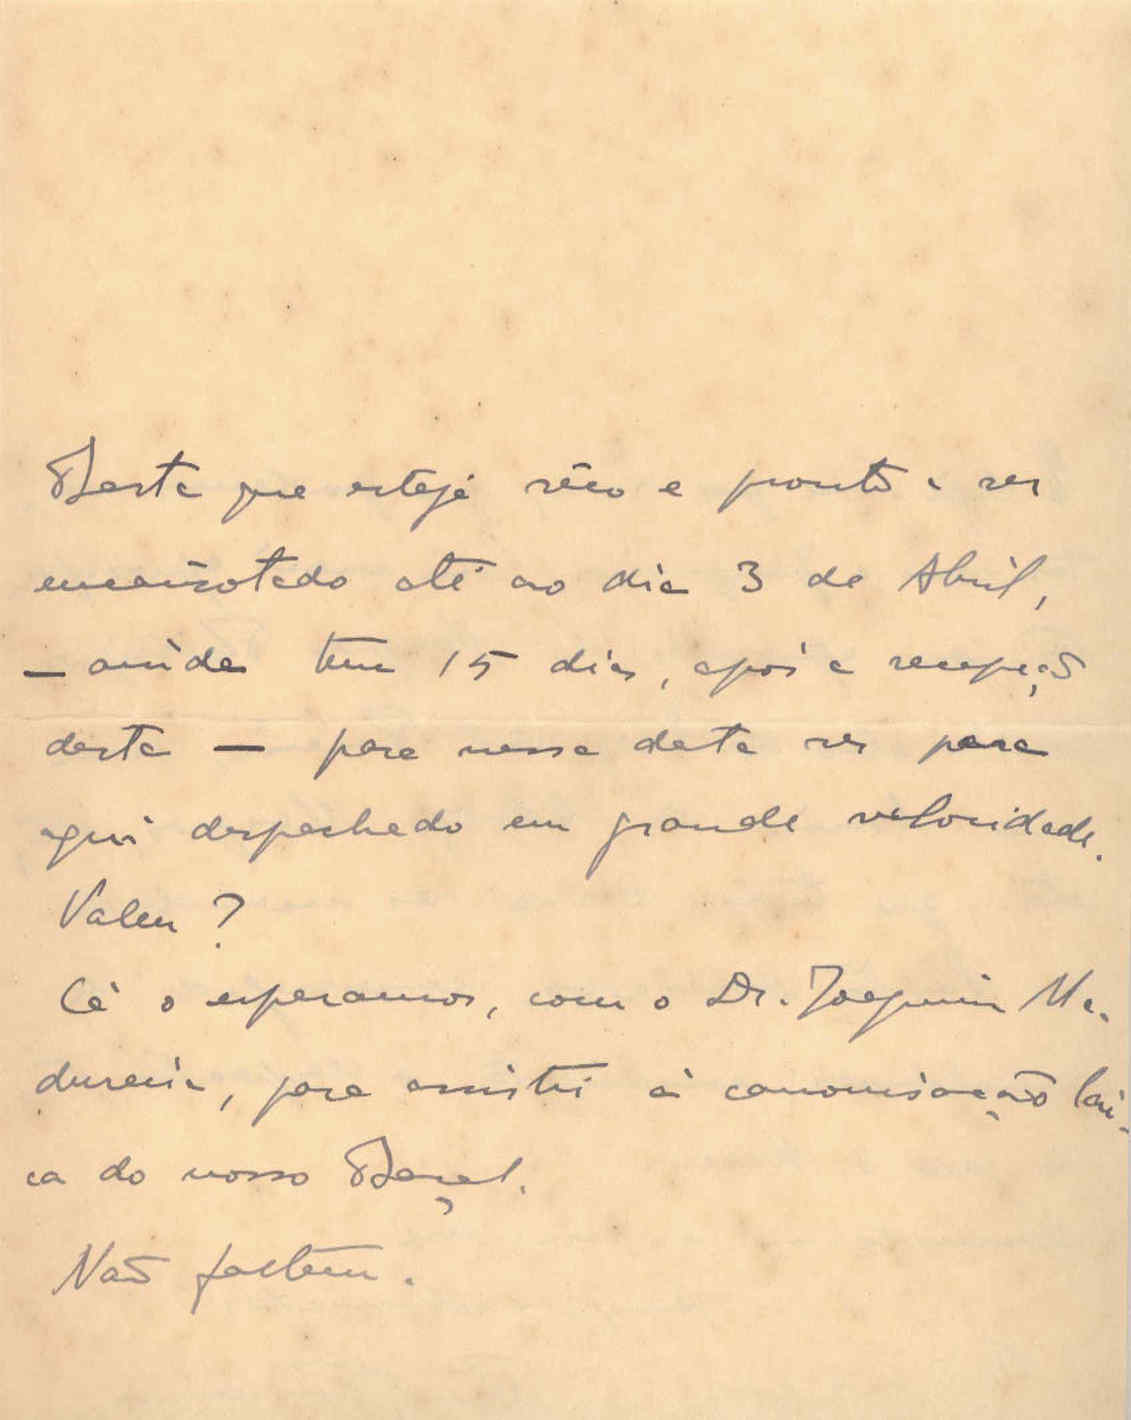 Basta que esteja sêco e pronto a ser
encaixotado até ao dia 3 de Abril,
— ainda tem 15 dias, após a recepção
desta — para nessa data ser para
aqui despachado em grande velocidade.
Valeu?
Cá o esperamos, com o Dr. Joaquim Ma-
dureira, para assistir à canonisação lai-
ca do nosso Barçal.
Não faltem.